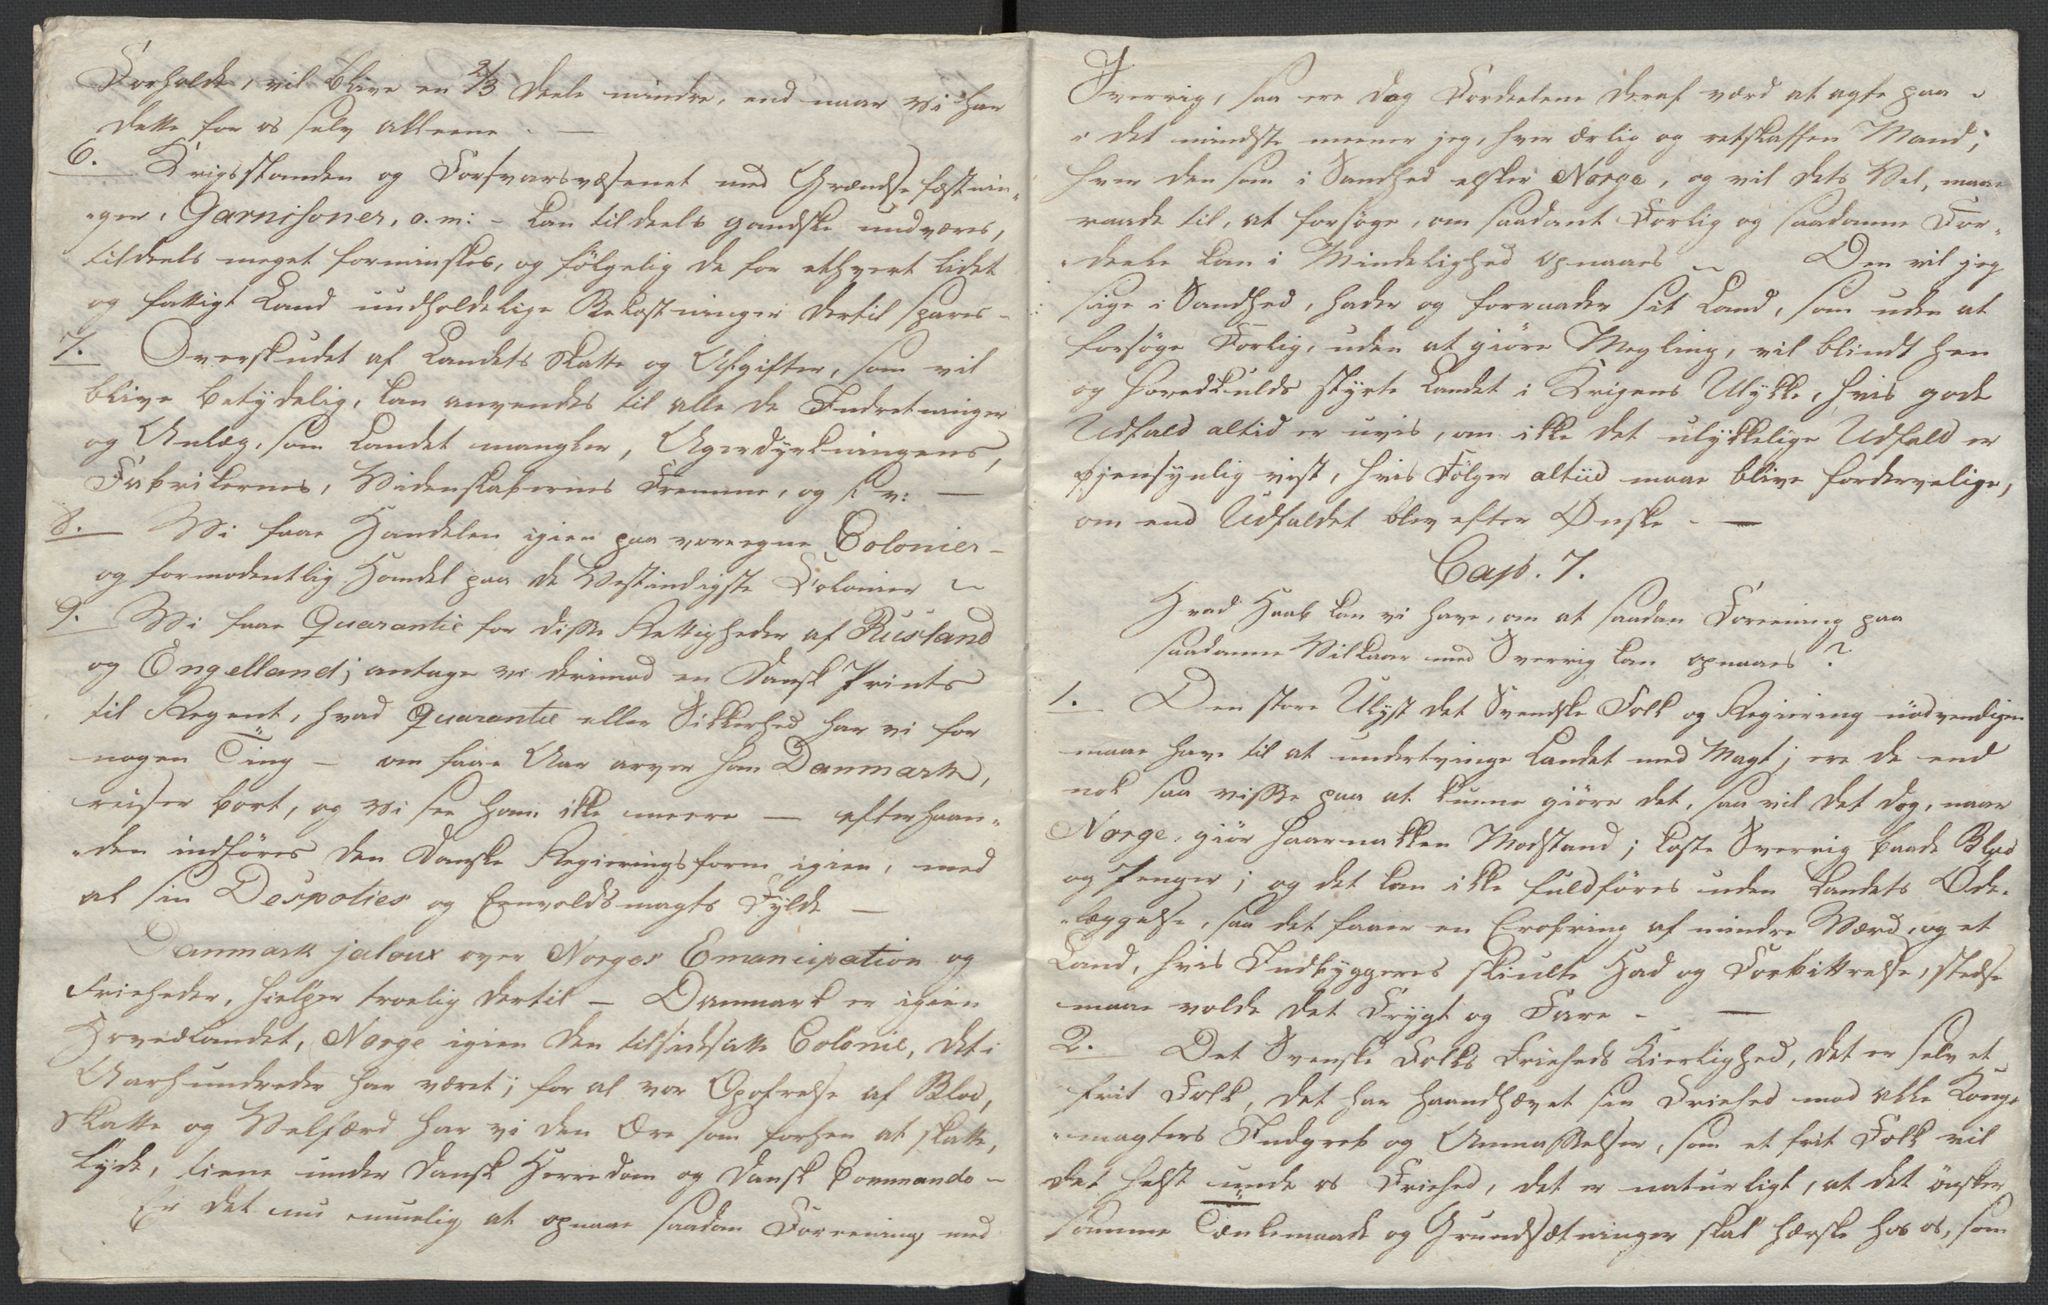 Forholde, vil blive en 2/3 Deele mindre, end naar vi har
dette for os selv alleene. —
6. Krigsstanden og Forsvarsvæsenet med Grændse fæstnin-
-ger, Garnisoner, o. m: - kan tildeels gandske undværes,
tildeels meget forminskes, og følgelig de for ethvert lidet
og fattigt Land uudholdelige Bekostninger dertil spares -
7. Overskudet af Landets Skatte og Afgifter, som vil
blive betydelig, kan anvendes til alle de Indretninger
og Anlæg, som Landet mangler, Agerdyrkningens,
Fabrikernes, Videnskabernes Fremme, og s. v: —
8. Vi faae Handelen igien paa vore egne Colonier -
og formodentlig Handel paa de Vestindiske Colonier ~
9. Vi faae Quarantie for disse Rettigheder af Rusland
og Engelland; antage vi derimod en Dansk Prints
til Regent, hvad Quarantie eller Sikkerhed har vi for
nogen Ting — om faae Aar arver han Danmark,
reiser bort, og vi see ham ikke meere — efterhaan-
-den indføres den Danske Regieringsform igien, med
al sin Despoties og Eenvoldsmagts Fylde —
Danmark jaloux over Norges Emancipation og
Frieheder, hielper troelig dertil — Danmark er igien
Hovedlandet, Norge igien den tilsidsatte Colonie, det i
Aarhundreder har været; for al vor Opofrelse af Blod,
Skatte og Velfærd har vi den Ære som forhen at skatte,
lyde, tiene under Dansk Herredom og Dansk Commando -
Er det nu muelig at opnaae saadan Foreening med
Sverrig, saa ere dog Fordeelene deraf værd at agte paa -
- det mindste meener jeg, hver ærlig og retskaffen Mand;
hver den som i Sandhed elsker Norge, og vil dets Vel, maae
raade til, at forsøge, om saadant Forlig og saadanne For-
-deele kan i Mindelighed opnaaes ~ Den vil jeg
sige i Sandhed, hader og forraader sit Land, som uden at
forsøge Forlig, uden at giøre Megling, vil blindt hen
og hovedkulds styrte Landet i Krigens Ulykke, hvis gode
Udfald altid er uvis, om ikke det ulykkelige Udfald er
øjensynlig vist, hvis Følger altiid maae blive fordervelige,
om end Udfaldet blev efter Ønske - —
Cap. 7.
Hvad Haab kan vi have, om at saadan Foreening paa
saadanne Vilkaar med Sverrig kan opnaaes?
1. Den store Ulyst det Svenske Folk og Regiering nødvendigen
maae have til at undertvinge Landet med Magt; ere de end
nok saa visse paa at kunne giøre det, saa vil det dog, naar
Norge giør haarnakken Modstand; koste Sverrig baade Blod
og Penger; og det kan ikke fuldføres uden Landets Øde-
-læggelse, saa det faaer en Erobring af mindre Værd, og et
Land, hvis Indbyggeres skiulte Had og Forbittrelse, stedse
maae volde det Frygt og Fare - —
2. Det Svenske Folks Frieheds Kierlighed, det er selv et
frit Folk, det har haandhævet sin Friehed mod alle Konge
-magters Indgreb og Anmasselser, som et frit Folk vil
det helst unde os Friehed, det er naturligt, at det ønsker
samme Tænkemaade og Grundsætninger skal hærske hos os, som